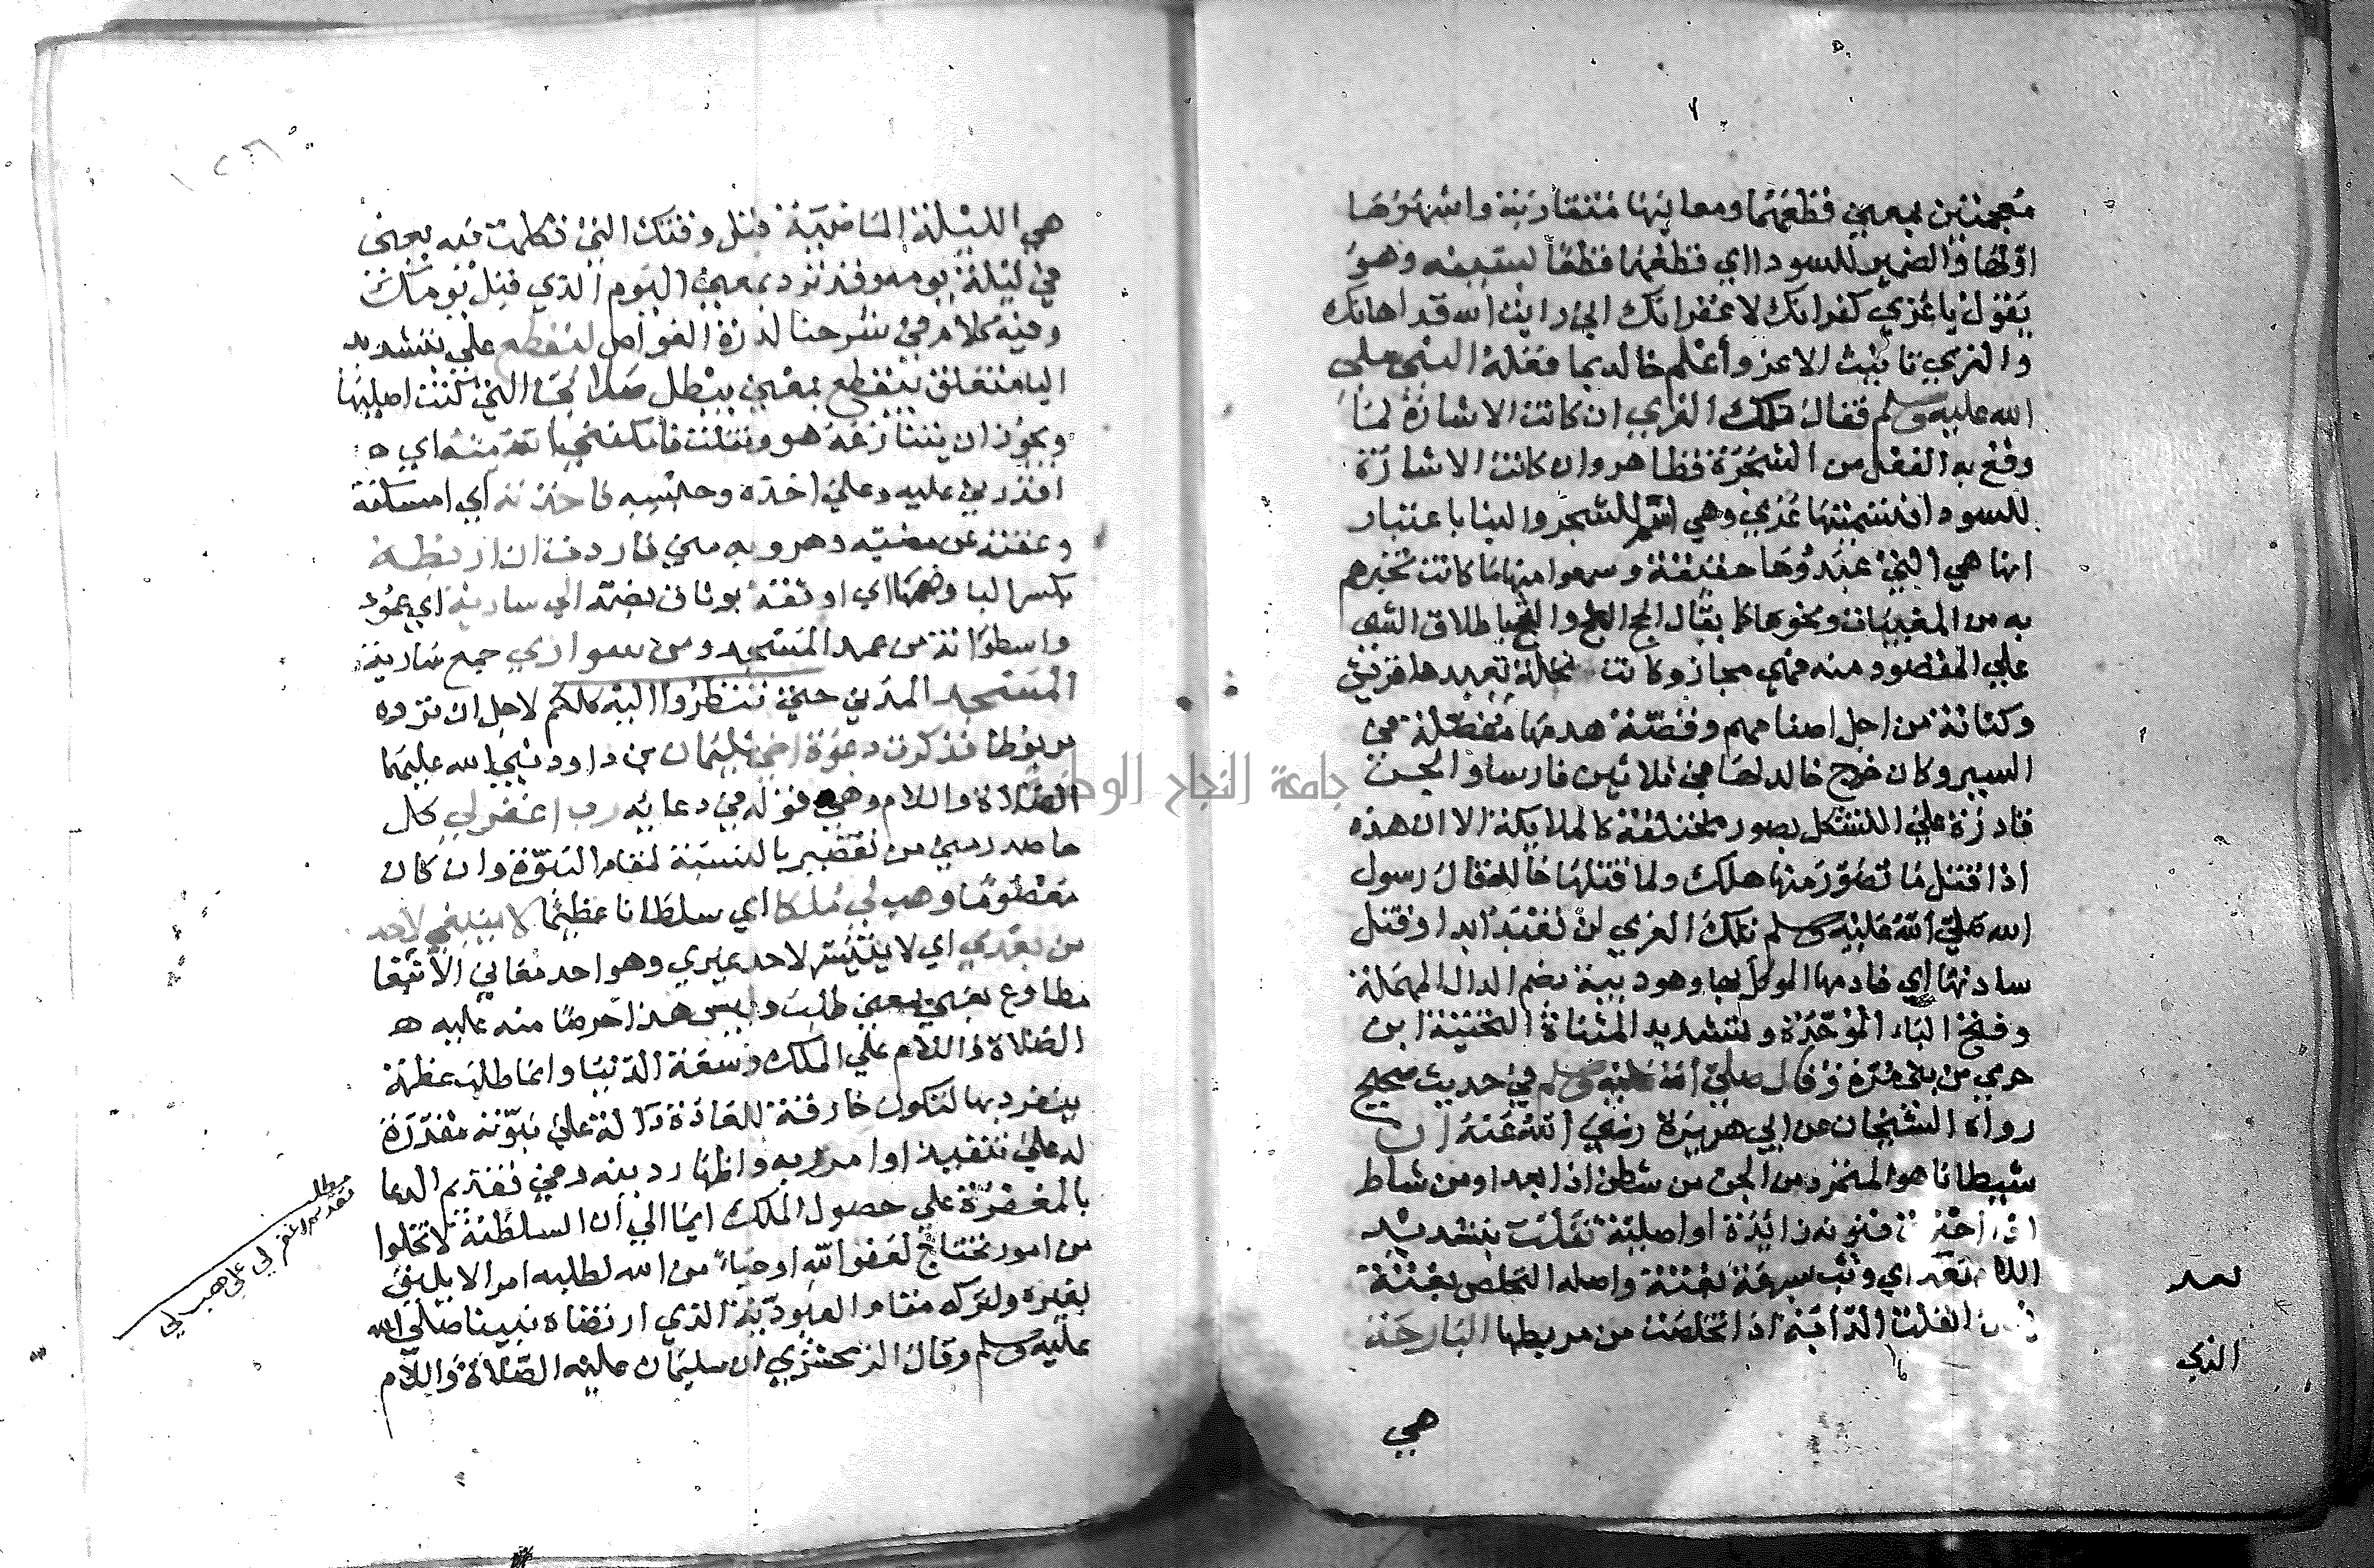 معجمتين بمعني قطعهما ومعانيها متقاربة واشهرها
اولها والضمير للسودا اي قطعها قطعا بسيفه وهو
يقول يا عزي كفرانك لا غفرانك اني رايت الله قد اهانك
والعزي تانيث الاعز وأعلم خالد بما فعله النبي صلي
الله عليه وسلم فقال تلك العزي ان كانت الاشارة لما
وقع به الفعل من الشجرة فظاهر وان كانت الاشارة
للسودا فتسميتها عزي وهي اسم للشجر والبنا باعتبار
انها هي التي عبدوها حقيقة وسمعوا منها ما كانت تخبرهم
به من المغيبات ونحوها كما يقال الحج العج والثج باطلاق الشي
علي المقصود منه فهي مجاز وكانت نخلة تعبدها قريش
وكنانة من اجل اصنامهم وقصة هدمها مفصلة في
السير وكان خرج خالد لها في ثلاثين فارسا والجن
قادرة علي التشكل بصور مختلفة كالملايكة الا ان هذه
اذا قتل ما تصور منها هلك ولما قتلها خالد قال رسول
الله صلي الله عليه وسلم تلك العزي لن تعبد ابدا وقتل
سادنها اي خادمها الموكل بها وهو دبية بضم الدال المهملة
وفتح الباء الموحدة وتشديد المثناة التحتية ابن
حربي من بني مرة وقال صلي الله عليه وسلم في حديث صحيح
رواه الشيخان عن ابي هريرة رضي الله عنه ان
شيطانا هو المتمرد من الجن من شطن اذا بعد او من شاط
اذا احترق فنونه زائدة او اصلية تفلت بتشديد
اللام تعد اي وثب بسرعة بغتة واصله التخلص بغتة
من انفلتت الدابة اذا تخلصت من مربطها البارحة
لعد
الذي
هي
هي الليلة الماضية قبل وقتك التي تكلمت فيه يعني
في ليلة يومه وقد ترد بمعني اليوم الذي قبل يومك
وفيه كلام في شرحنا لدرة الغواص ليقطع علي بتشديد
اليا متعلق بيقطع بمعني يبطل صلاتي التي كنت اصليها
ويجوز ان يتنازعه هو وتفلت فامكنني الله منه اي ه
اقدرني عليه وعلي اخذه وحبسه فاخذته اي امسكته
وعقته عن مضيه وهروبه مني فاردت ان اربطه
بكسر البا وضمها اي اوثقه بوثاق بضمه الي سارية اي عمود
واسطوانة من عمد المسجد ومن سواري جمع سارية
المسجد المدني حتي تنظروا اليه كلكم لاجل ان تروه
مربوطا فذكرت دعوة اخي سليمان بن داود نبي الله عليهما
الصلاة والسلام وهي قوله في دعايه رب اغفر لي كل
ما صدر مني من تقصير بالنسبة لمقام النبوة وان كان
معصوما وهب لي ملكا اي سلطانا عظيما لا ينبغي لاحد
من بعدي اي لا يتيسر لاحد غيري وهو احد معاني الانبغا
مطاوع بغي بمعني طلب وليس هذا حرصا منه عليه ه
الصلاة والسلام علي الملك وسعة الدنيا وانما طلب عظمة
ينفرد بها لتكون خارقة للعادة دالة علي نبوته مقدرة
له علي تنفيذ اوامر ربه واظهار دينه وفي تقديم الدعا
بالمغفرة علي حصول الملك ايما الي أن السلطنة لا تخلوا
من امور تحتاج لعفو الله او حياء من الله لطلبه امرا لا يليق
بغيره ولتركه مقام العبودية الذي ارتضاه نبينا صلي الله
عليه وسلم وقال الزمخشري ان سليمان عليه الصلاة والسلام
مطلب
تقدم اغفر لي علي هب لي
جامعة النجاح الوطنية